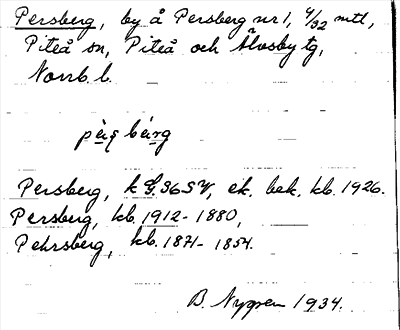 Persberg, by å Persberg nr 1, 4/32 mtl,
Piteå sn, Piteå och Älvsby tg,
Norrb. l.
Persberg, k G. 365 V, ek. bek. kb. 1926.
Persberg, kb. 1912-1880,
Pehrsberg, kb. 1871-1854.
B. Nygren 1934.